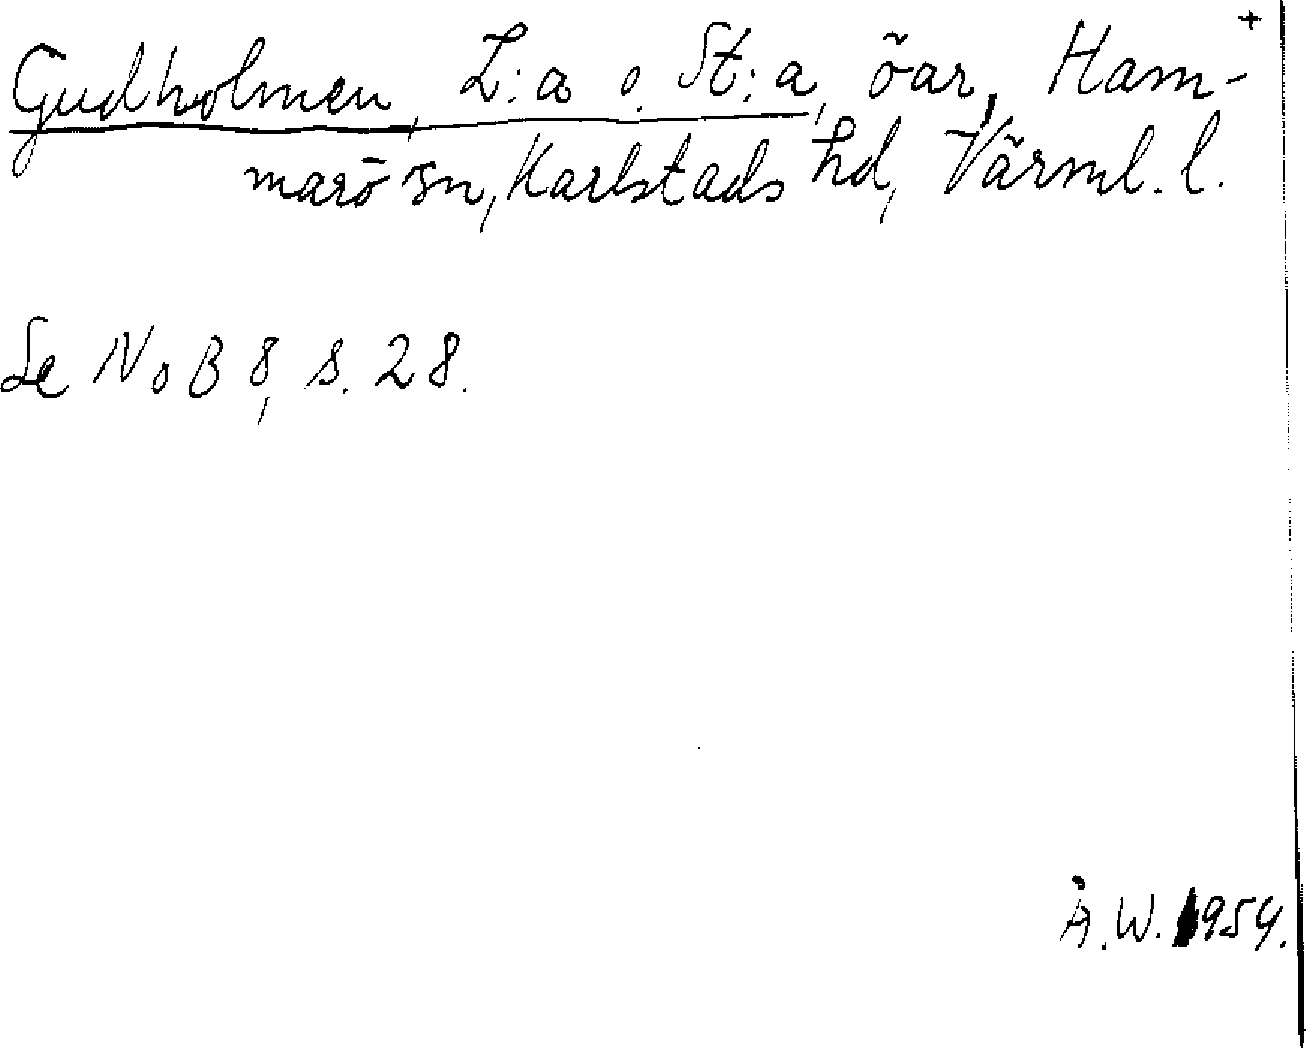 Gudholmen, L:a o. St:a, öar, Ham- +
marö sn, Karlstads hd, Värml. l.
Se NoB 8, s. 28.
Å.W. 1954.